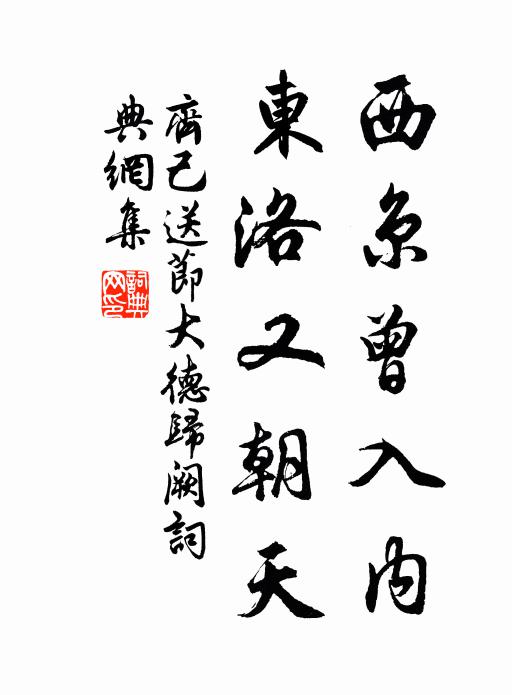 西京曾入內
東洛又朝天
齊己送節大德歸闕詞
典網集
詞典網印